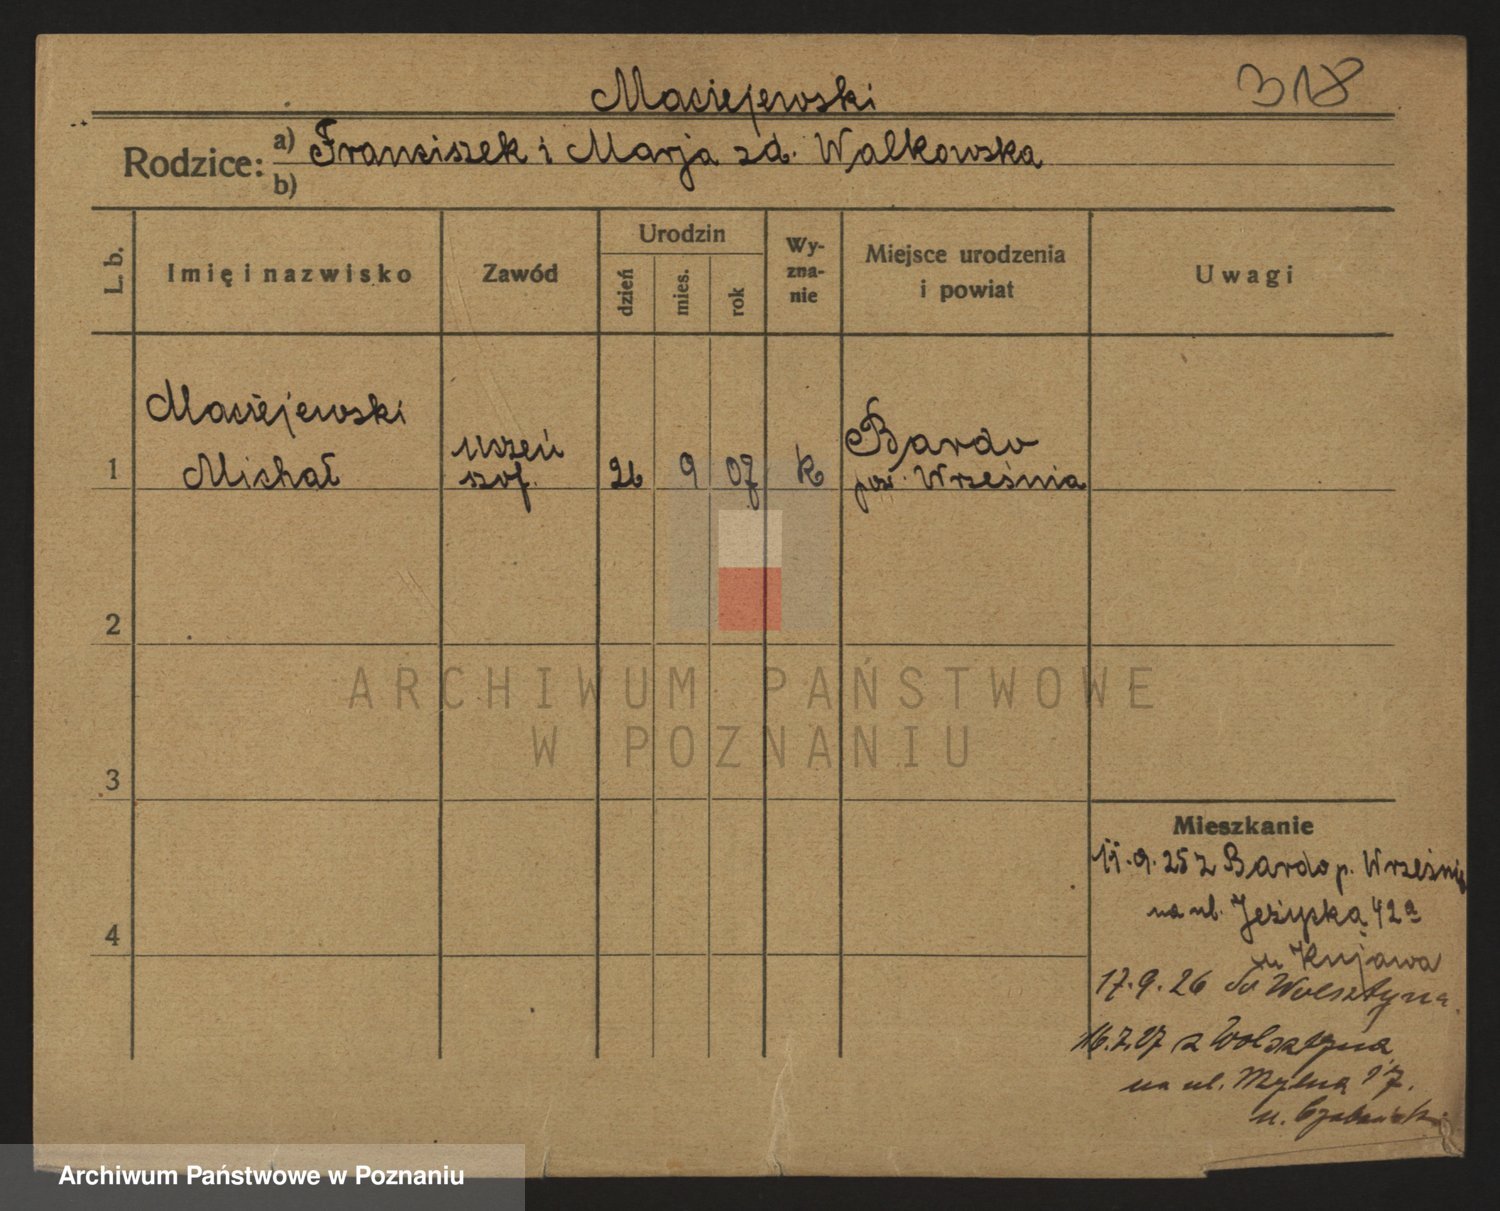 Maciejewski
318
Rodzice: a) Franciszek i Marja zd. Walkowska
b)
L. b.
Imię i nazwisko
Zawód
Urodzin
dzień
mies.
rok
Wy-
zna-
nie
Miejsce urodzenia
i powiat
Uwagi
1
Maciejewski
Michał
uczeń
szof.
26
9
07
k
Bardo
pow. Września
2
3
4
ARCHIWUM PAŃSTWOWE
W POZNANIU
Mieszkanie
11.9.25 z Bardo p. Września
na ul. Jeżycką 42a
u Kujawa
17.9.26 do Wolsztyna
16.7.27 z Wolsztyna
na ul. Mylną 17.
u.
Archiwum Państwowe w Poznaniu